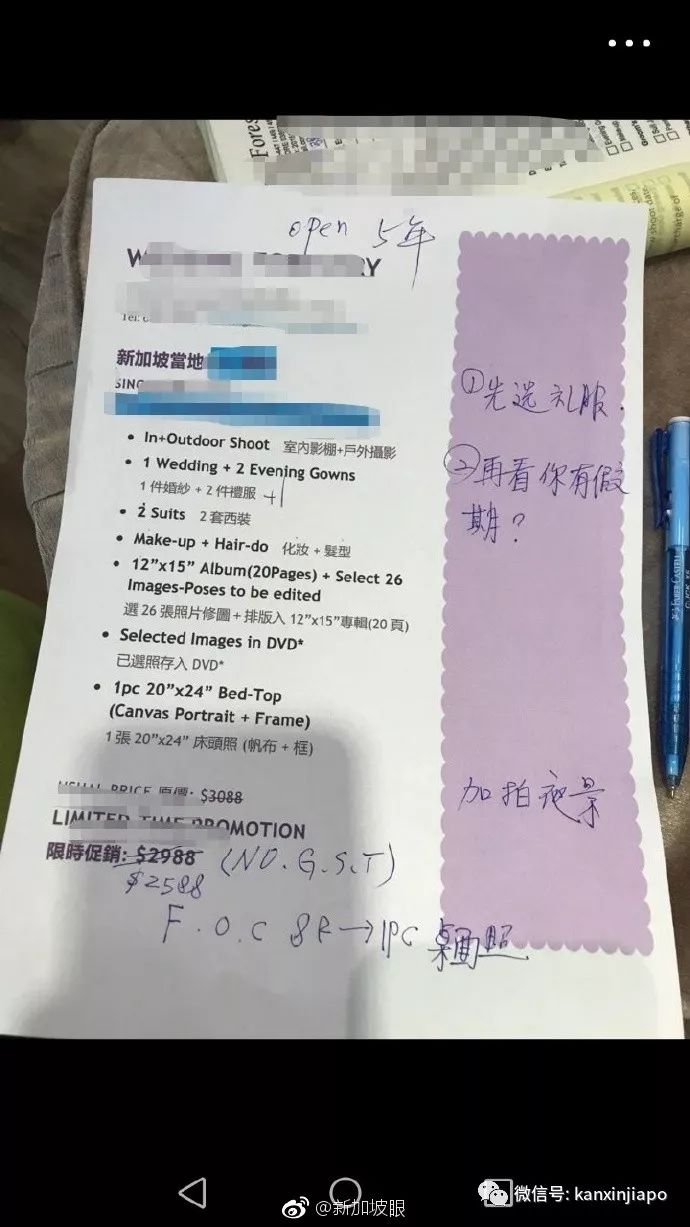 Fores
open 5年
新加坡當地
• In+Outdoor Shoot 室內影棚+戶外攝影
• 1 Wedding + 2 Evening Gowns
1 件婚紗 + 2 件禮服 +1
• 2 Suits 2 套西裝
• Make-up + Hair-do 化妝 + 髮型
• 12”x15” Album(20Pages) + Select 26
Images-Poses to be edited
選 26 張照片修圖 + 排版入 12”x15”專輯(20 頁)
• Selected Images in DVD*
已選照存入 DVD*
• 1pc 20”x24” Bed-Top
(Canvas Portrait + Frame)
1 張 20”x24” 床頭照 (帆布 + 框)
USUAL PRICE 原價: $3088
LIMITED TIME PROMOTION
限時促銷: $2988 (NO.G.S.T)
$2588
F.O.C 8R→1PC 桌面照
①先选礼服.
②再看你有假
期?
加拍夜景
FABER-CASTELL
@新加坡眼
微信号: kanxinjiapo